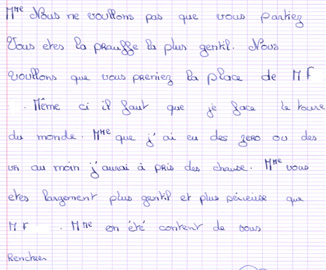 Mme Nous ne voullons pas que vous partiez
Vous etes la prauffe la plus gentil. Nous
voullons que vous preniez la place de M F
. Même ci il faut que je face le toure
du monde. Mme que j'ai eu des zero ou des
un au moin j'aurai à pris des chause. Mme vous
etes largement plus gentil et plus serieuse que
M F . Mme on été content de vous
Rencteer